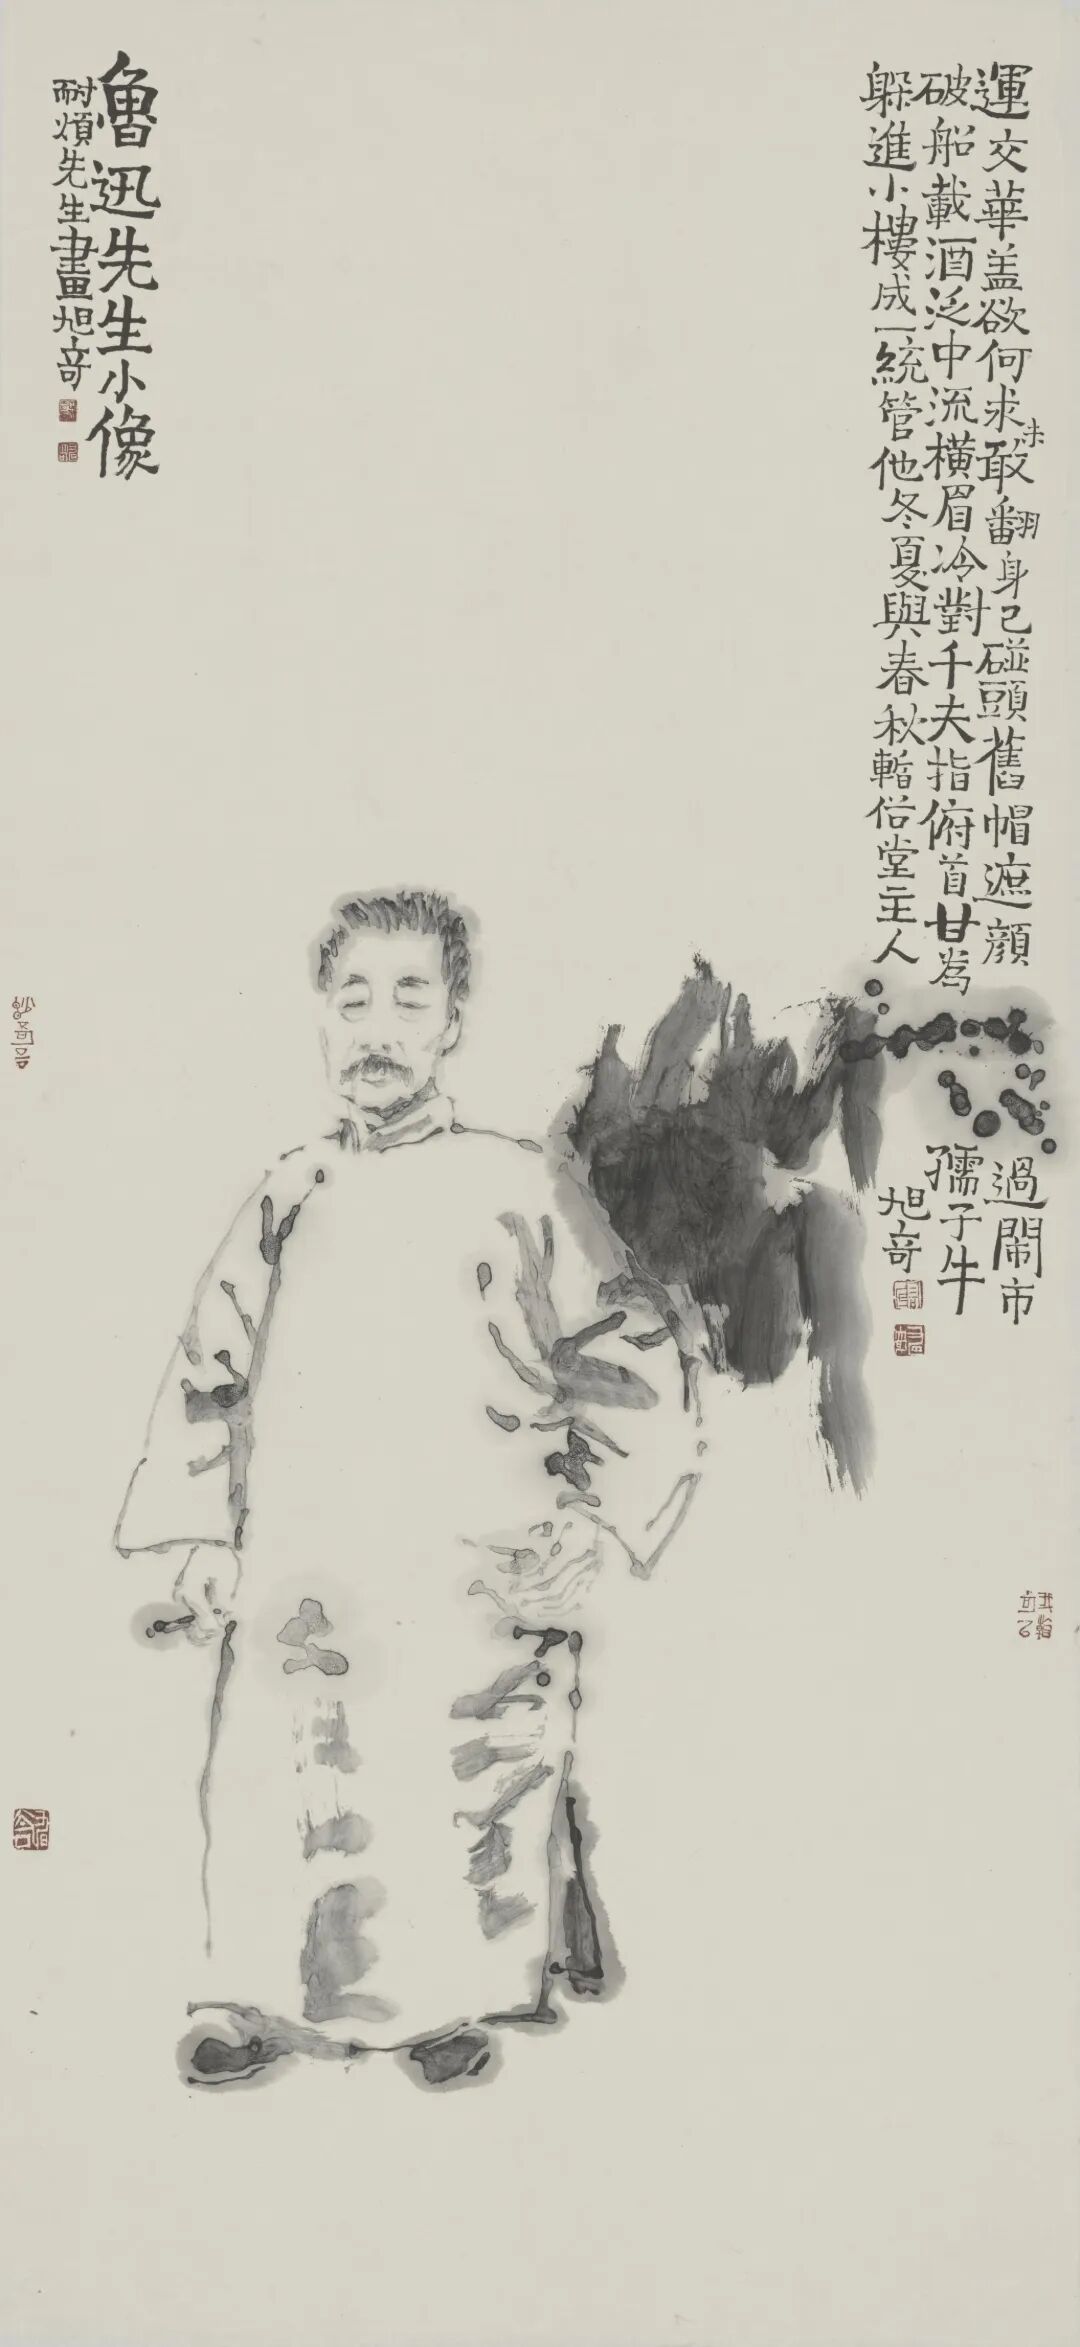 運交華盖欲何求未敢翻身已碰頭舊帽遮顔過鬧市
破船載酒泛中流橫眉冷對千夫指俯首甘為孺子牛
躲進小樓成一統管他冬夏與春秋堂主人旭竒
魯迅先生小像
耐煩先生畫旭竒